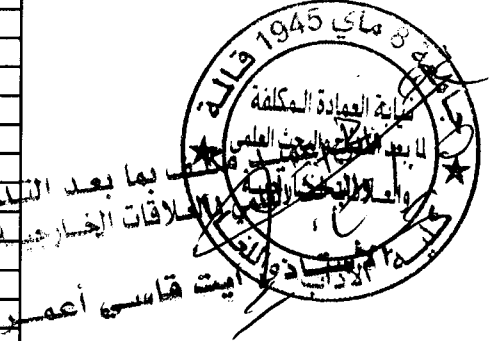 جامعة 8 ماي 1945 قالمة
نيابة العمادة المكلفة
لما بعد التدرج والبحث العلمي
والعلاقات الخارجية
كلية الآداب واللغات
مكلف بما بعد
العلاقات الخارجية
آيت قاسي أعمر